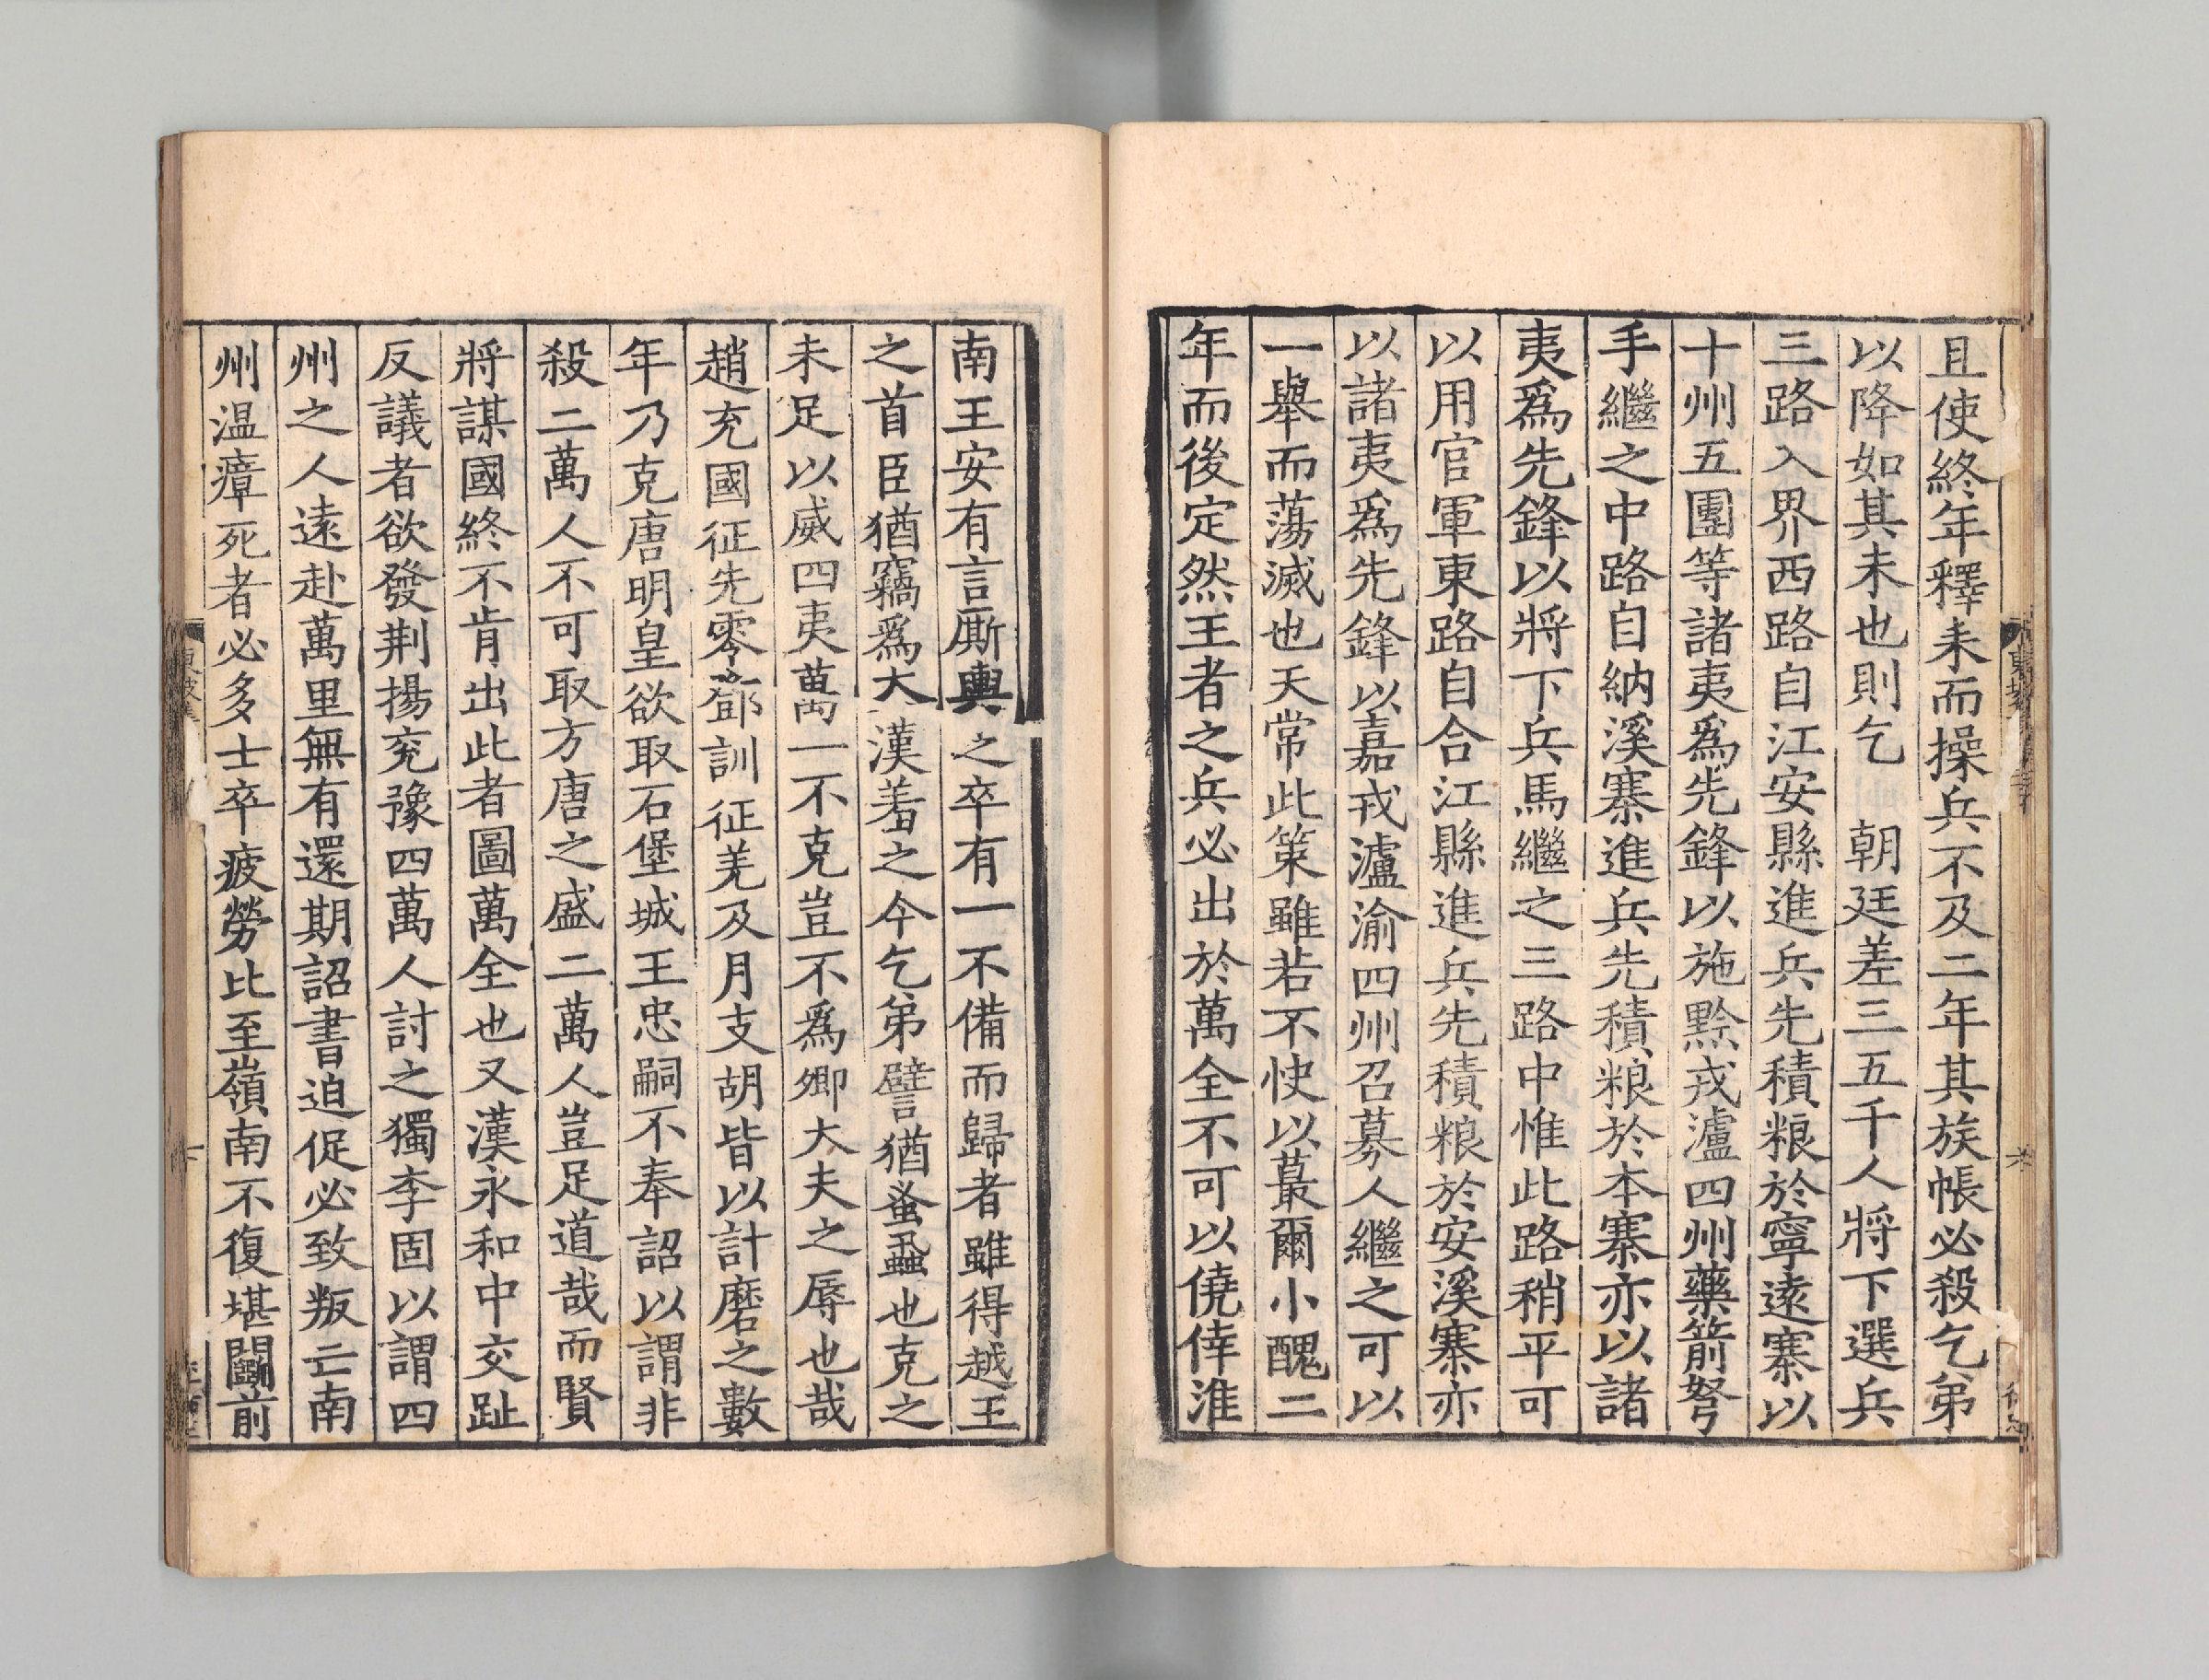 且使終年釋耒而操兵不及二年其族帳必殺乞弟
以降如其未也則乞　朝廷差三五千人將下選兵
三路入界西路自江安縣進兵先積粮於寧遠寨以
十州五團等諸夷爲先鋒以施黔戎瀘四州藥箭弩
手繼之中路自納溪寨進兵先積粮於本寨亦以諸
夷爲先鋒以將下兵馬繼之三路中惟此路稍平可
以用官軍東路自合江縣進兵先積粮於安溪寨亦
以諸夷爲先鋒以嘉戎瀘渝四州召募人繼之可以
一舉而蕩滅也天常此策雖若不快以蕞爾小醜二
年而後定然王者之兵必出於萬全不可以僥倖淮
南王安有言厮輿之卒有一不備而歸者雖得越王
之首臣猶竊爲大漢羞之今乞弟譬猶蚤蝨也克之
未足以威四夷萬一不克豈不爲卿大夫之辱也哉
趙充國征先零鄧訓征羌及月支胡皆以計磨之數
年乃克唐明皇欲取石堡城王忠嗣不奉詔以謂非
殺二萬人不可取方唐之盛二萬人豈足道哉而賢
將謀國終不肯出此者圖萬全也又漢永和中交趾
反議者欲發荆揚兖豫四萬人討之獨李固以謂四
州之人遠赴萬里無有還期詔書迫促必致叛亡南
州温瘴死者必多士卒疲勞比至嶺南不復堪鬬前